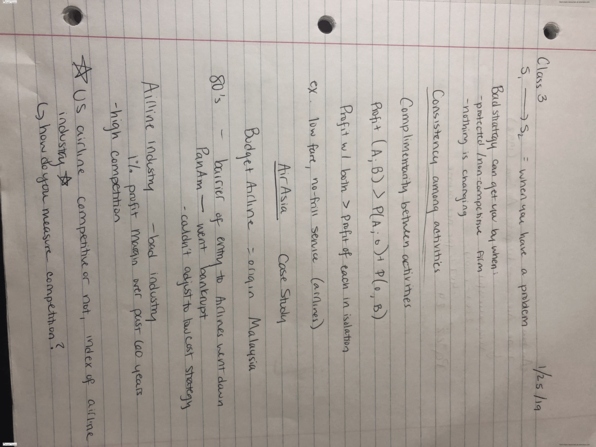 Class 3 1/25/19
S₁ → S₂ = when you have a problem
Bad strategy can get you by when:
- protected / non competitive firm
- nothing is changing
Consistency among activities
Complimentarity between activities
Profit (A, B) > P(A, 0) + P(0, B)
Profit w/ both > profit of each in isolation
ex. low fare, no-frill service (airlines)
Air Asia Case Study
Budget Airline = origin Malaysia
80's - barrier of entry to Airlines went down
Pan Am — went bankrupt
- couldn't adjust to low cost strategy
Airline industry - bad industry
1% profit margin over past 60 years
- high competition
☆ US airline competitive or not, index of airline
industry ☆
↳ how do you measure competition?